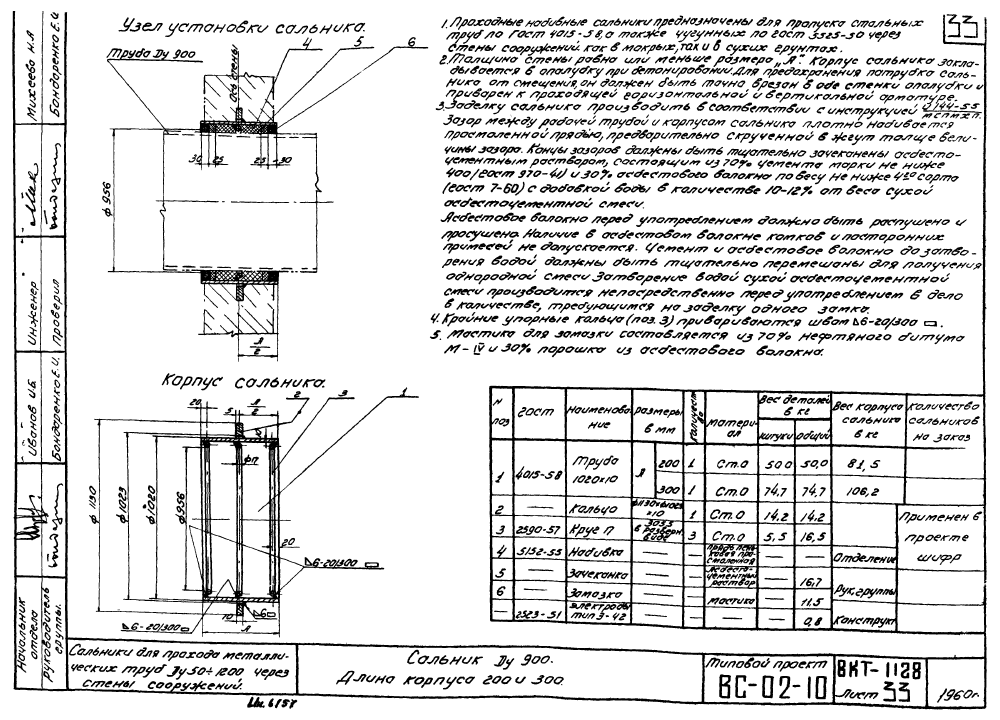 Узел установки сальника.
4
5
6
Труба Dу 900
Ось стены
30
25
25
30
ф956
Л
2
1. Проходные набивные сальники предназначены для пропуска стальных
труб по ГОСТ 4015-58, а также чугунных по ГОСТ 5525-50 через
стены сооружений как в мокрых, так и в сухих грунтах.
2. Толщина стены равна или меньше размера „Л". Корпус сальника закла-
дывается в опалубку при бетонировании. Для предохранения патрубка саль-
ника от смещения он должен быть точно врезан в обе стенки опалубки и
приварен к проходящей горизонтальной и вертикальной арматуре.
3. Заделку сальника производить в соответствии с инструкцией
Зазор между рабочей трубой и корпусом сальника плотно набивается
просмоленной прядью, предварительно скрученной в жгут толще вели-
чины зазора. Концы зазоров должны быть тщательно зачеканены асбесто-
цементным раствором, состоящим из 70% цемента марки не ниже
400 (ГОСТ 970-41) и 30% асбестового волокна по весу не ниже 4го сорта
(ГОСТ 7-60) с добавкой воды в количестве 10-12% от веса сухой
асбестоцементной смеси.
Асбестовое волокно перед употреблением должно быть распушено и
просушено. Наличие в асбестовом волокне комков и посторонних
примесей не допускается. Цемент и асбестовое волокно до затво-
рения водой должны быть тщательно перемешаны для получения
однородной смеси. Затворение водой сухой асбестоцементной
смеси производится непосредственно перед употреблением в дело
в количестве, требующимся на заделку одного замка.
4. Крайние упорные кольца (поз. 3) привариваются швом 6-20/300.
5. Мастика для замазки составляется из 70% нефтяного битума
М-IV и 30% порошка из асбестового волокна.
33
Корпус сальника.
2
3
1
20
5
Л
2
фП
ф1130
ф1023
ф1020
ф956
20
6-20/300
6-20/300
10
6
Л
N поз
ГОСТ
Наименование
размеры в мм
Количество
материал
Вес деталей в кг
штуки
общий
Вес корпуса сальника в кг
количество сальников на заказ
1 4015-58 Труба 1020×10 Л 200 1 Ст.0 50,0 50,0 81,5
300 1 Ст.0 74,7 74,7 106,2
2 — Кольцо 1 Ст.0 14,2 14,2
3 2590-57 Круг П 3 Ст.0 5,5 16,5
4 5152-55 Набивка — — — —
5 — Зачеканка — — асбестоцементный раствор — 16,7
6 — Замазка — — мастика — 11,5
— 2523-51 электроды тип Э-42 — — — — 0,8
Применен в
проекте
шифр
Отделение
Рук. группы
Конструкт
Михеева Н.А
Бондаренко Е.И.
Инженер
Проверил
Иванов И.Б
Бондаренко Е.И.
Начальник отдела
Руководитель группы.
Сальники для прохода металли-
ческих труб Dу 50÷1200 через
стены сооружений.
Сальник Dу 900.
Длина корпуса 200 и 300.
Типовой проект
ВС-02-10
ВКТ-1128
Лист 33
1960г.